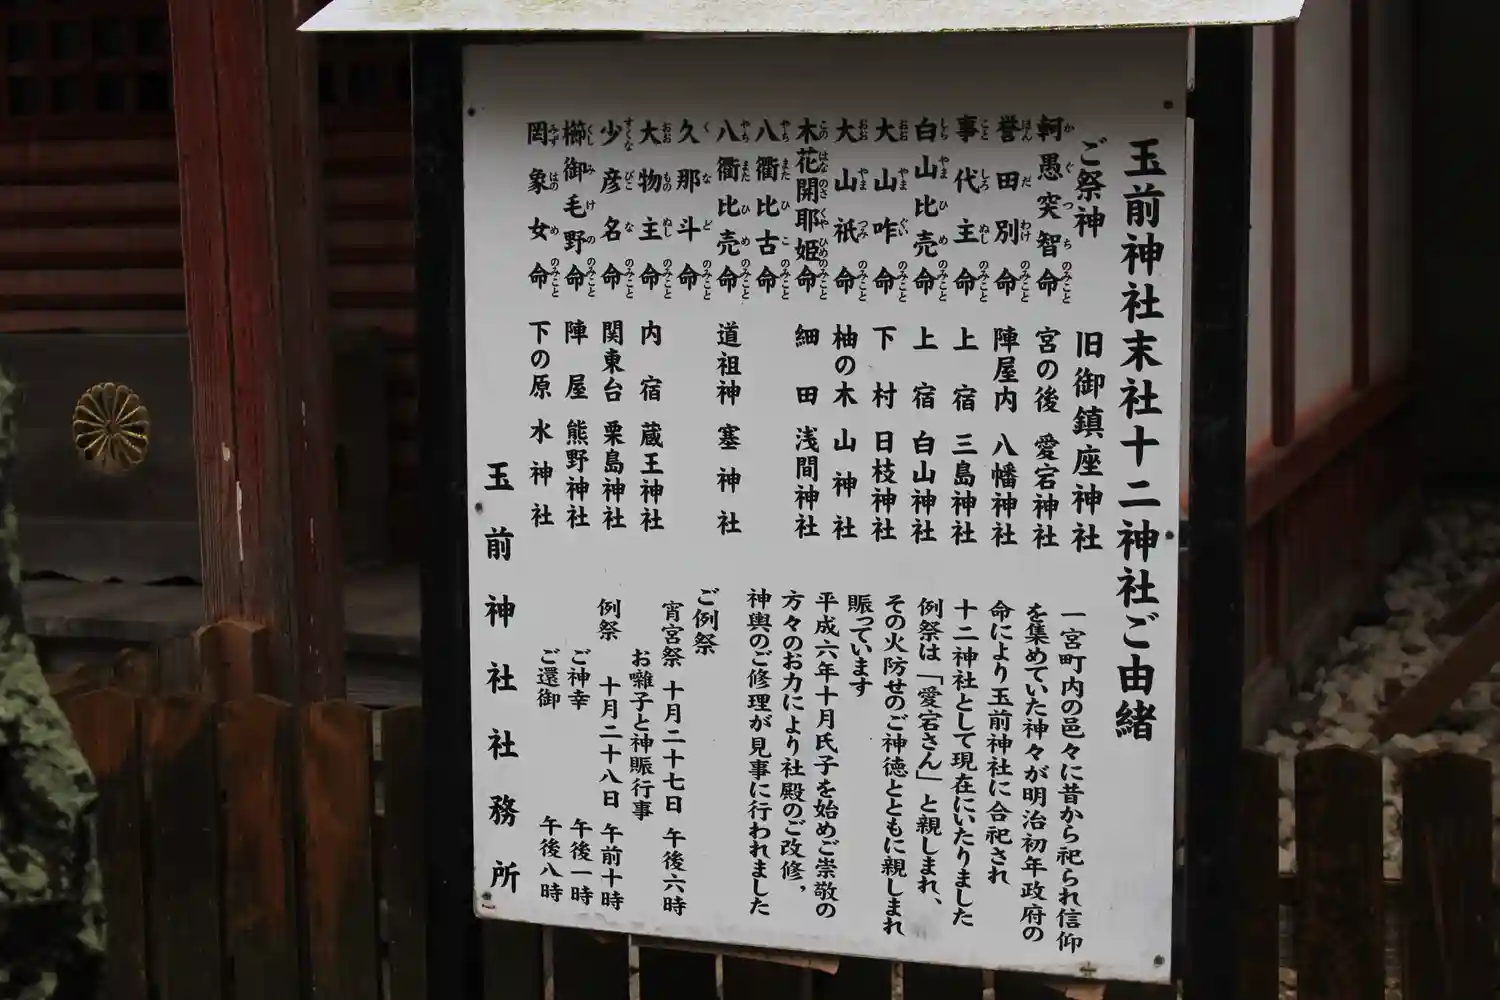 玉前神社末社十二神社ご由緒
ご祭神 旧御鎮座神社
軻愚突智命 宮の後 愛宕神社
誉田別命 陣屋内 八幡神社
事代主命 上宿 三島神社
白山比売命 上宿 白山神社
大山咋命 下村 日枝神社
大山祇命 柚の木 山神社
木花開耶姫命 細田 浅間神社
八衢比古命
八衢比売命 道祖神 塞神社
久那斗命
大物主命 内宿 蔵王神社
少彦名命 関東台 粟島神社
櫛御毛野命 陣屋 熊野神社
罔象女命 下の原 水神社
一宮町内の邑々に昔から祀られ信仰
を集めていた神々が明治初年政府の
命により玉前神社に合祀され
十二神社として現在にいたりました
例祭は「愛宕さん」と親しまれ、
その火防せのご神徳とともに親しまれ
賑っています
平成六年十月氏子を始めご崇敬の
方々のお力により社殿のご改修，
神輿のご修理が見事に行われました
ご例祭
宵宮祭 十月二十七日 午後六時
お囃子と神賑行事
例祭 十月二十八日 午前十時
ご神幸 午後一時
ご還御 午後八時
玉前神社社務所